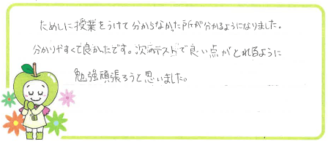 ためしに授業をうけて分からなかた所が分かるようになりました。
分かりやすくて良かたです。次のテストで良い点がとれるように
勉強頑張ろうと思いました。